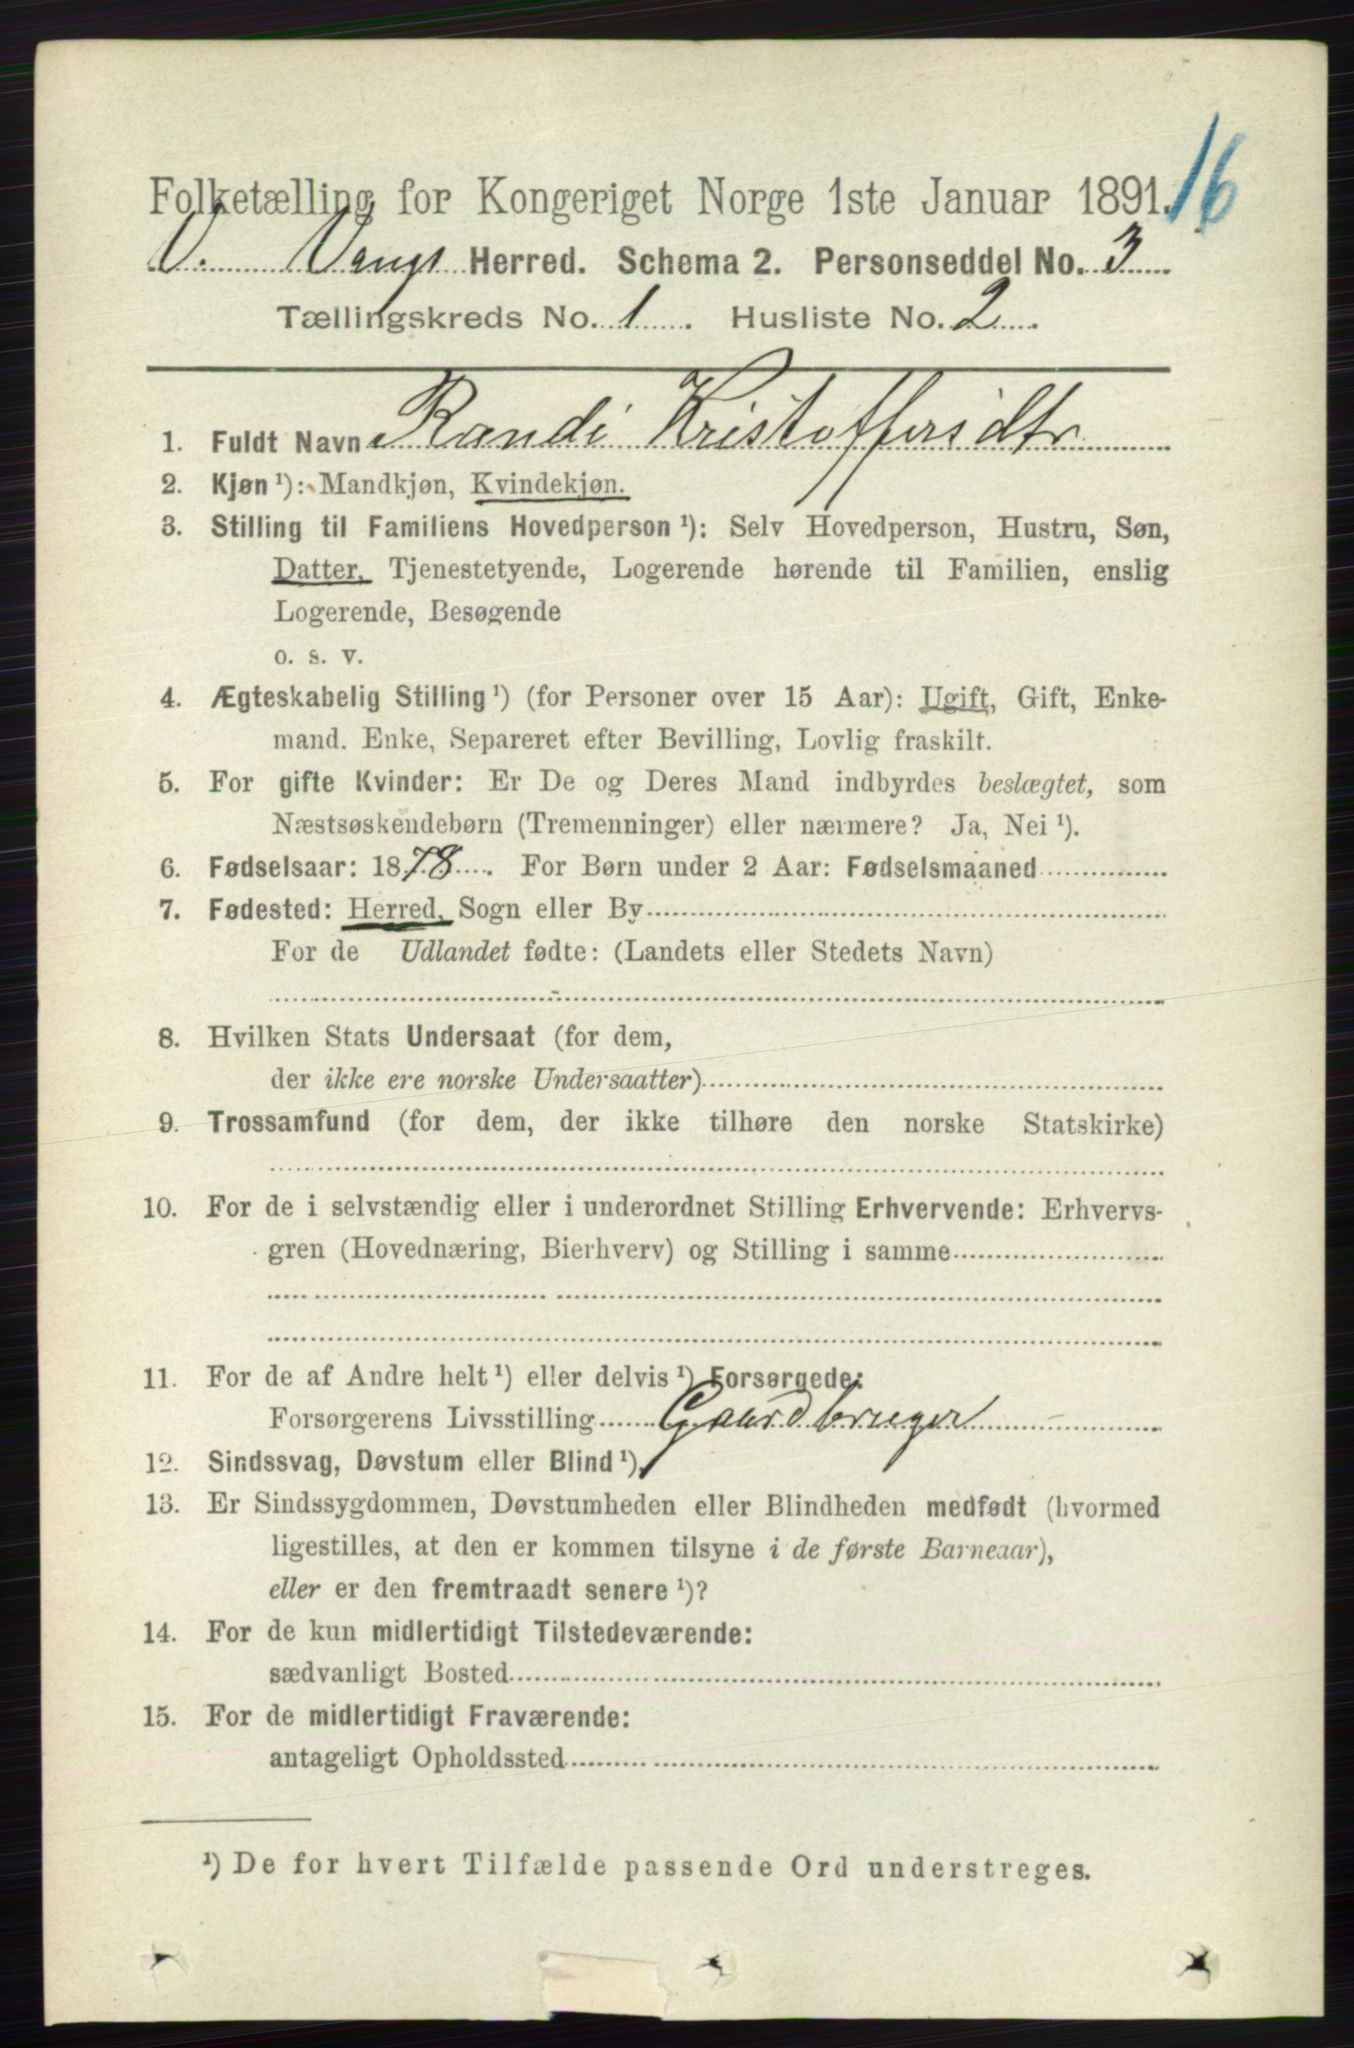 16
Folketælling for Kongeriget Norge 1ste Januar 1891.
V. Vangs Herred. Schema 2. Personseddel No. 3
Tællingskreds No. 1. Husliste No. 2.
1. Fuldt Navn Randi Kristoffersdtr
2. Kjøn ¹): Mandkjøn, Kvindekjøn.
3. Stilling til Familiens Hovedperson ¹): Selv Hovedperson, Hustru, Søn,
Datter, Tjenestetyende, Logerende hørende til Familien, enslig
Logerende, Besøgende
o. s. v.
4. Ægteskabelig Stilling ¹) (for Personer over 15 Aar): Ugift, Gift, Enke-
mand. Enke, Separeret efter Bevilling, Lovlig fraskilt.
5. For gifte Kvinder: Er De og Deres Mand indbyrdes beslægtet, som
Næstsøskendebørn (Tremenninger) eller nærmere? Ja, Nei ¹).
6. Fødselsaar: 1878. For Børn under 2 Aar: Fødselsmaaned
7. Fødested: Herred, Sogn eller By
For de Udlandet fødte: (Landets eller Stedets Navn)
8. Hvilken Stats Undersaat (for dem,
der ikke ere norske Undersaatter)
9. Trossamfund (for dem, der ikke tilhøre den norske Statskirke)
10. For de i selvstændig eller i underordnet Stilling Erhvervende: Erhvervs-
gren (Hovednæring, Bierhverv) og Stilling i samme
11. For de af Andre helt ¹) eller delvis ¹) Forsørgede:
Forsørgerens Livsstilling Gaardbruger
12. Sindssvag, Døvstum eller Blind ¹).
13. Er Sindssygdommen, Døvstumheden eller Blindheden medfødt (hvormed
ligestilles, at den er kommen tilsyne i de første Barneaar),
eller er den fremtraadt senere ¹)?
14. For de kun midlertidigt Tilstedeværende:
sædvanligt Bosted
15. For de midlertidigt Fraværende:
antageligt Opholdssted
¹) De for hvert Tilfælde passende Ord understreges.